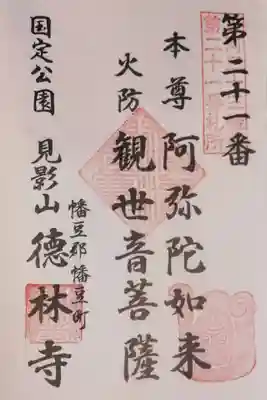 第二十一番
本尊 阿弥陀如来
火防 観世音菩薩
幡豆郡幡豆町
国定公園 見影山 徳林寺